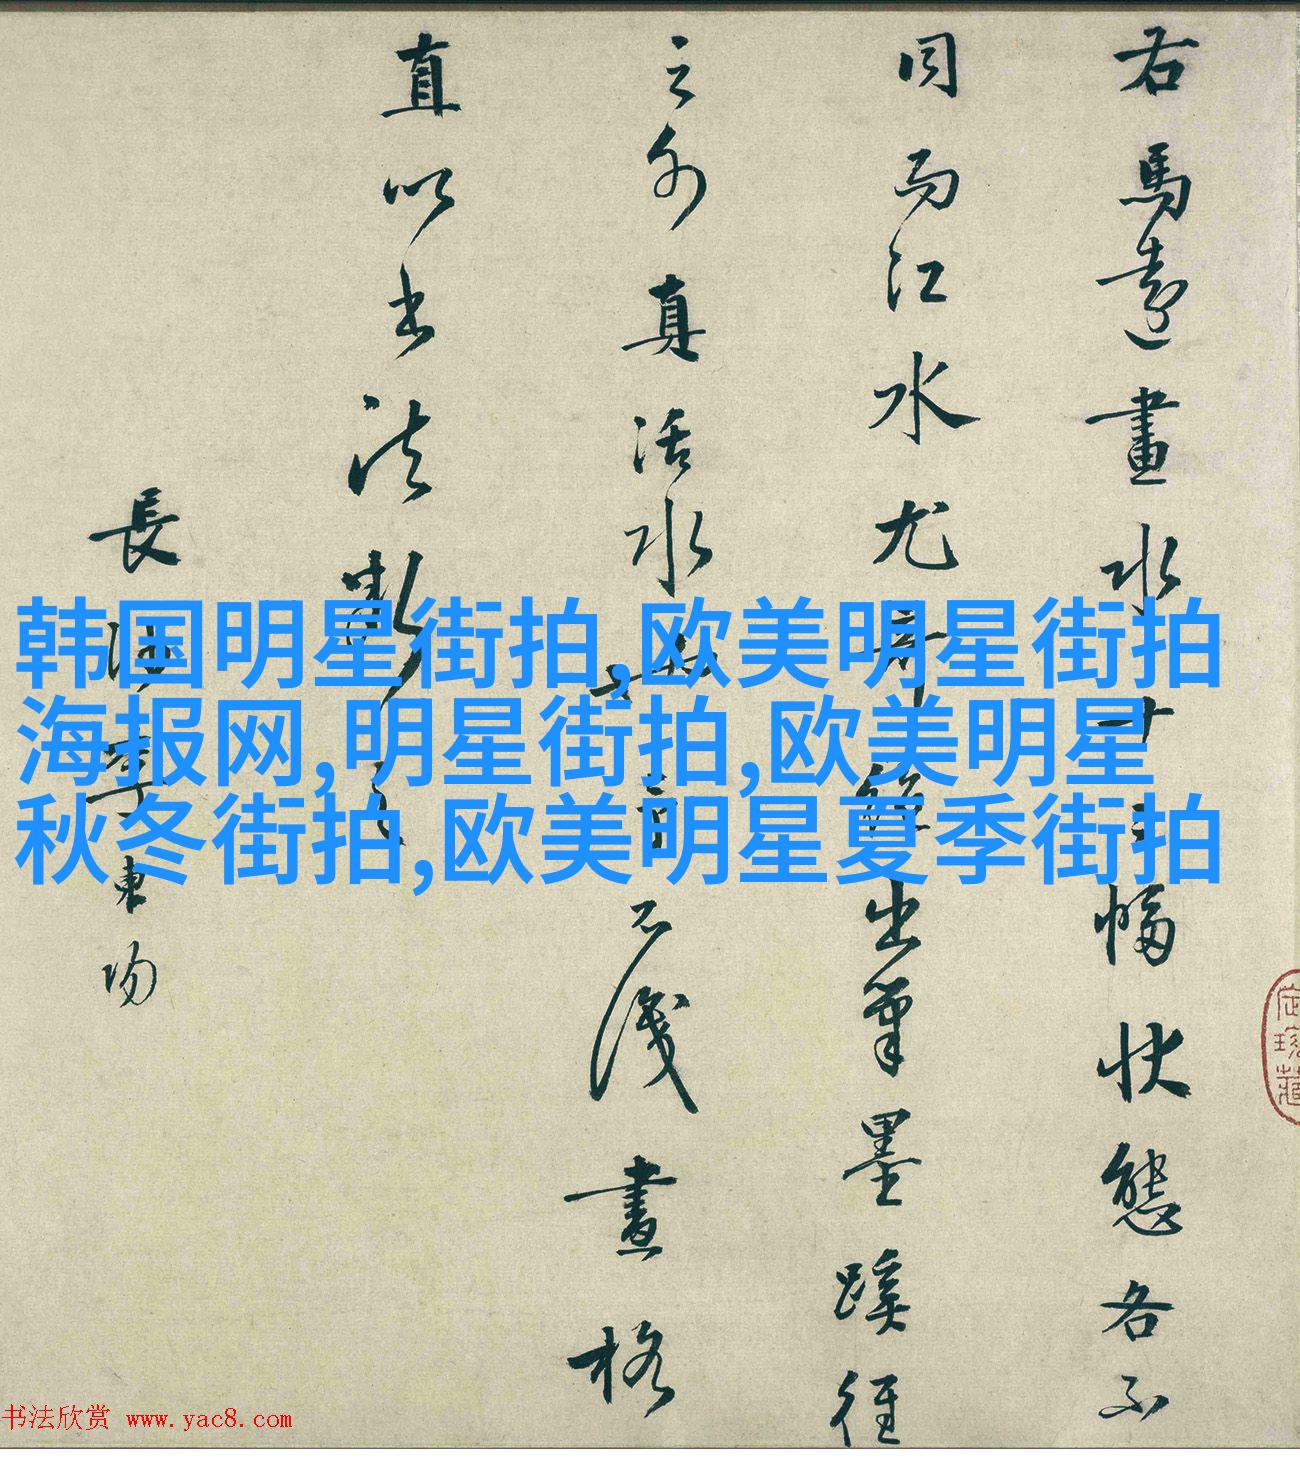 右馬遠畫水十二幅狀態各不
同而江水尤奇絕出筆墨蹊徑
之外真活水
石淺畫格
直以書法斷之
長沙李東陽
韩国明星街拍,欧美明星街拍
海报网,明星街拍,欧美明星
秋冬街拍,欧美明星夏季街拍
书法欣赏 www.yac8.com